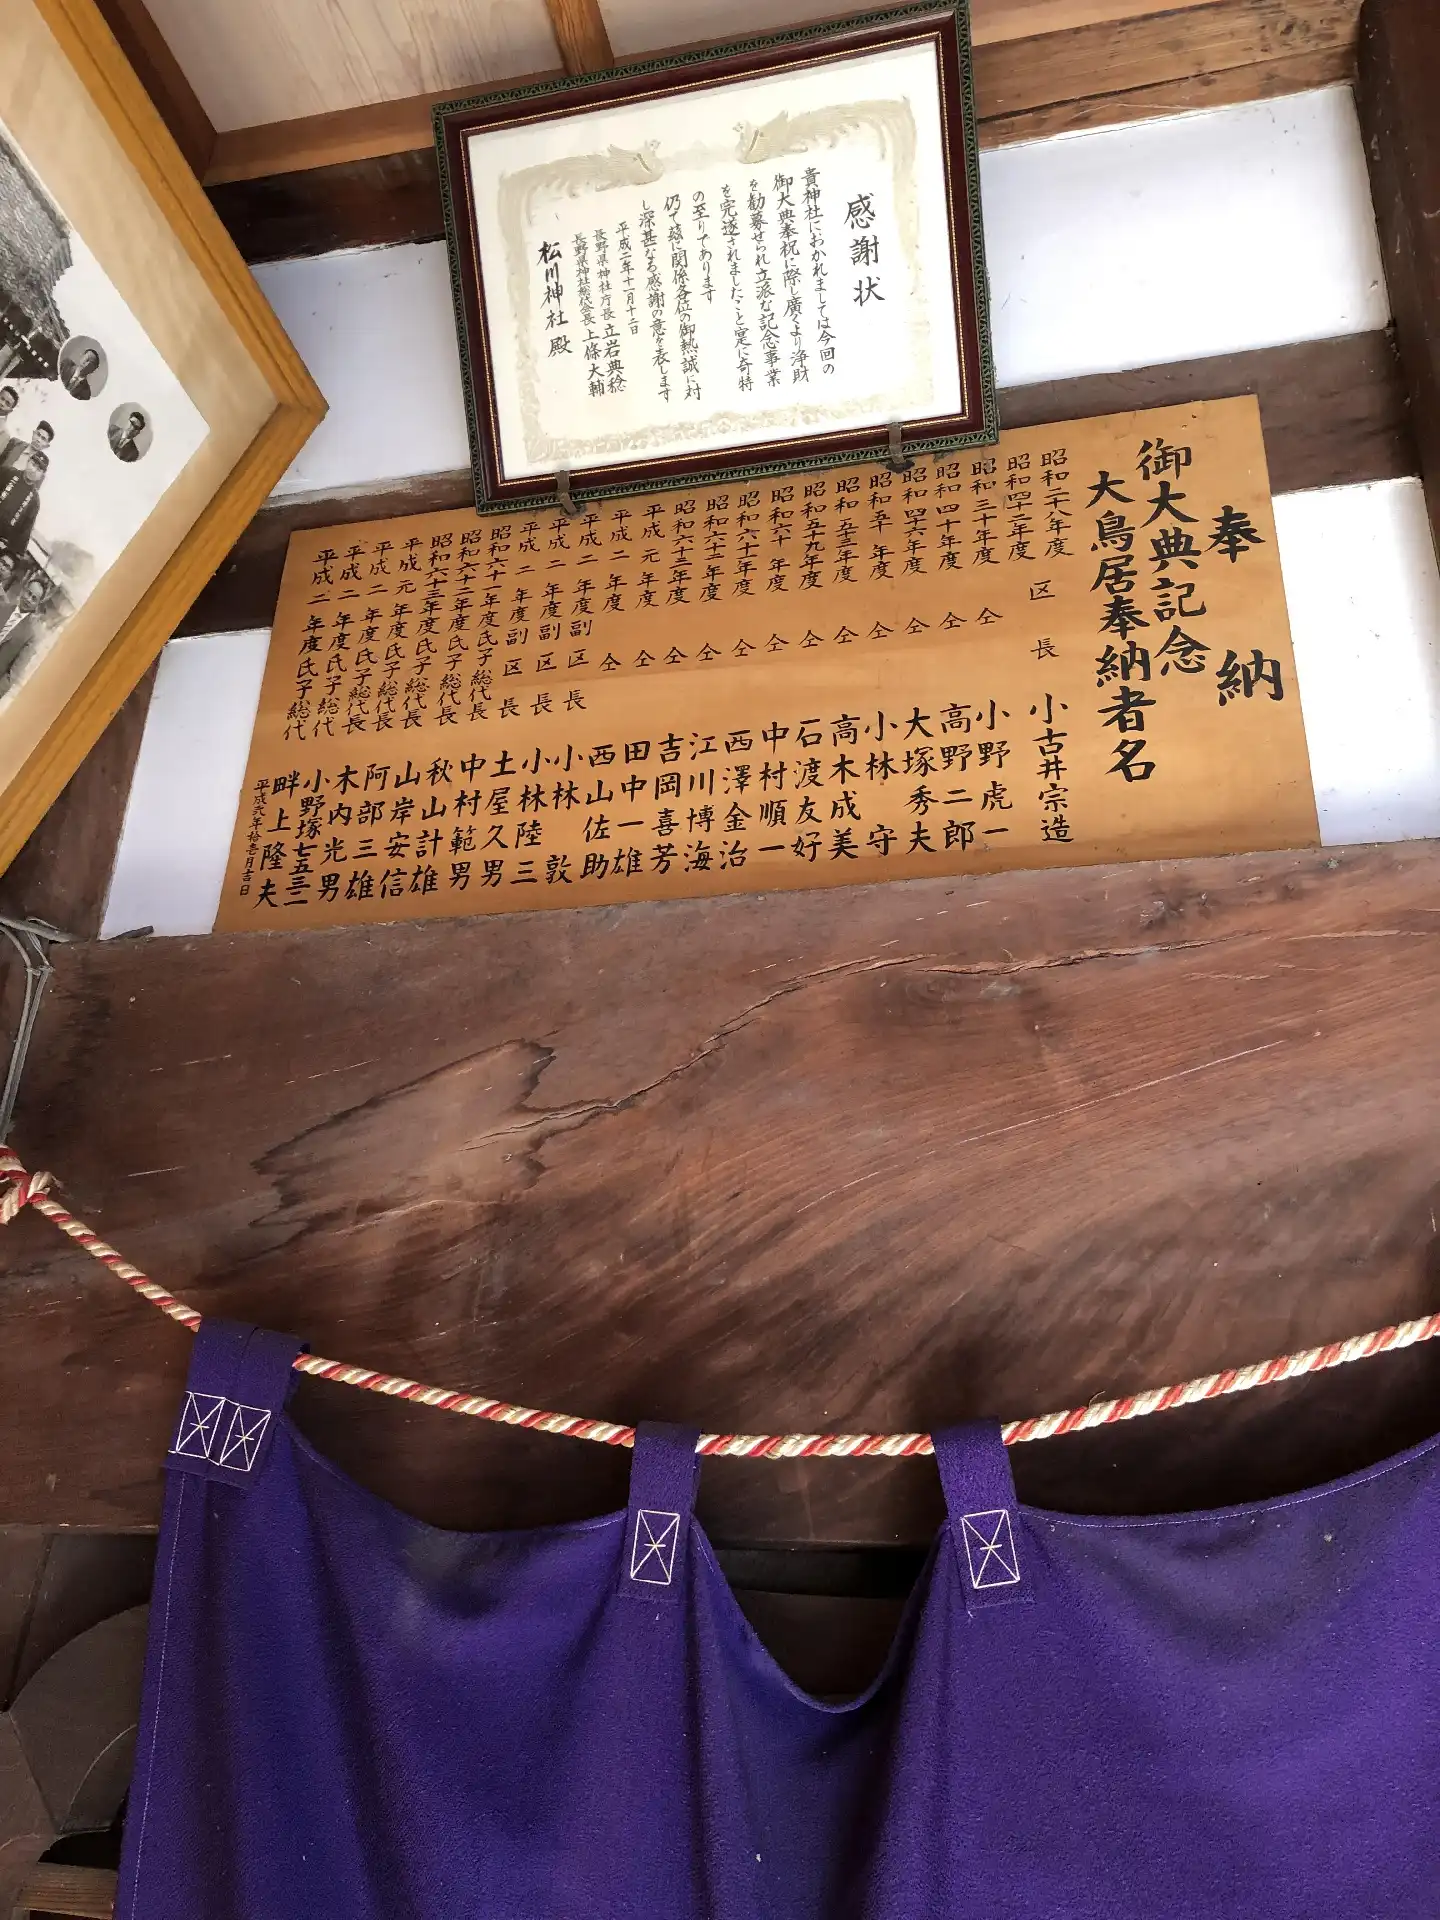 感謝状
貴神社におかれましては今回の
御大典奉祝に際し廣くより浄財
を勧募せられ立派な記念事業
を完遂されましたこと寔に奇特
の至りであります
仍て茲に関係各位の御熱誠に対
し深甚なる感謝の意を表します
平成二年十一月十二日
長野県神社庁長 立岩典稔
長野県神社総代会長 上條大輔
松川神社殿
奉納
御大典記念
大鳥居奉納者名
昭和二八年度
昭和四十二年度 区長 小古井宗造
昭和三十年度 仝 小野虎一
昭和四十年度 仝 高野二郎
昭和四十六年度 仝 大塚秀夫
昭和五十年度 仝 小林守
昭和五十三年度 仝 高木成美
昭和五十九年度 仝 石渡友好
昭和六十年度 仝 中村順一
昭和六十一年度 仝 西澤金治
昭和六十二年度 仝 江川博海
昭和六十三年度 仝 吉岡喜芳
平成元年度 仝 田中一雄
平成二年度 仝 西山佐助
平成二年度副区長 小林敦
平成二年度副区長 小林陸三
平成二年度副区長 土屋久男
昭和六十一年度氏子総代長 中村範男
昭和六十二年度氏子総代長 秋山計雄
昭和六十三年度氏子総代長 山岸安信
平成元年度氏子総代長 阿部三雄
平成二年度氏子総代長 木内光男
平成二年度氏子総代 小野塚七五三二
平成二年度氏子総代 畔上隆夫
平成弐年拾壱月吉日